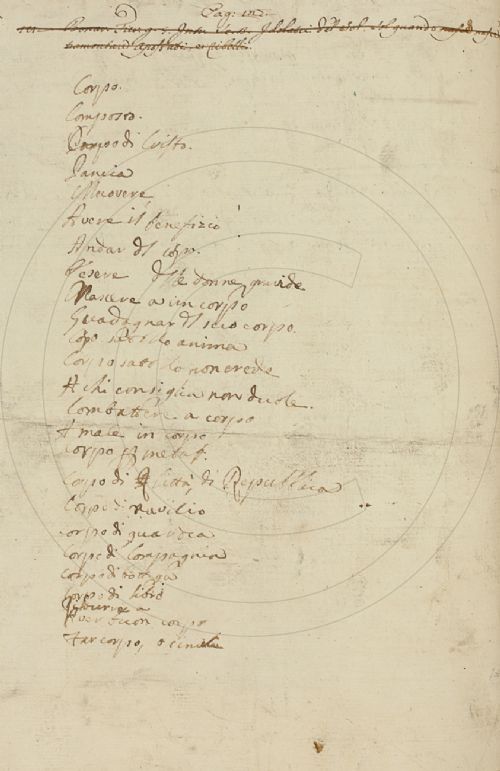 Pag:
Corpo.
Composto.
Corpo di Cristo.
Pancia
Muovere
Avere il benefizio
Andar del corp.
Essere delle donne gravide
Nascere a un corpo
Guadagnar del suo corpo.
Corpo satollo anima
Corpo satollo non crede
A chi consiglia non duole.
Combattere a corpo
A male in corpo
Corpo p metaf.
Corpo di Città, di Repubblica
Corpo di navilio
Corpo di guardia
Corpo di Compagnia
Corpo di bottega
Corpo di libro
a
Aver buon corpo
Far corpo, e simili